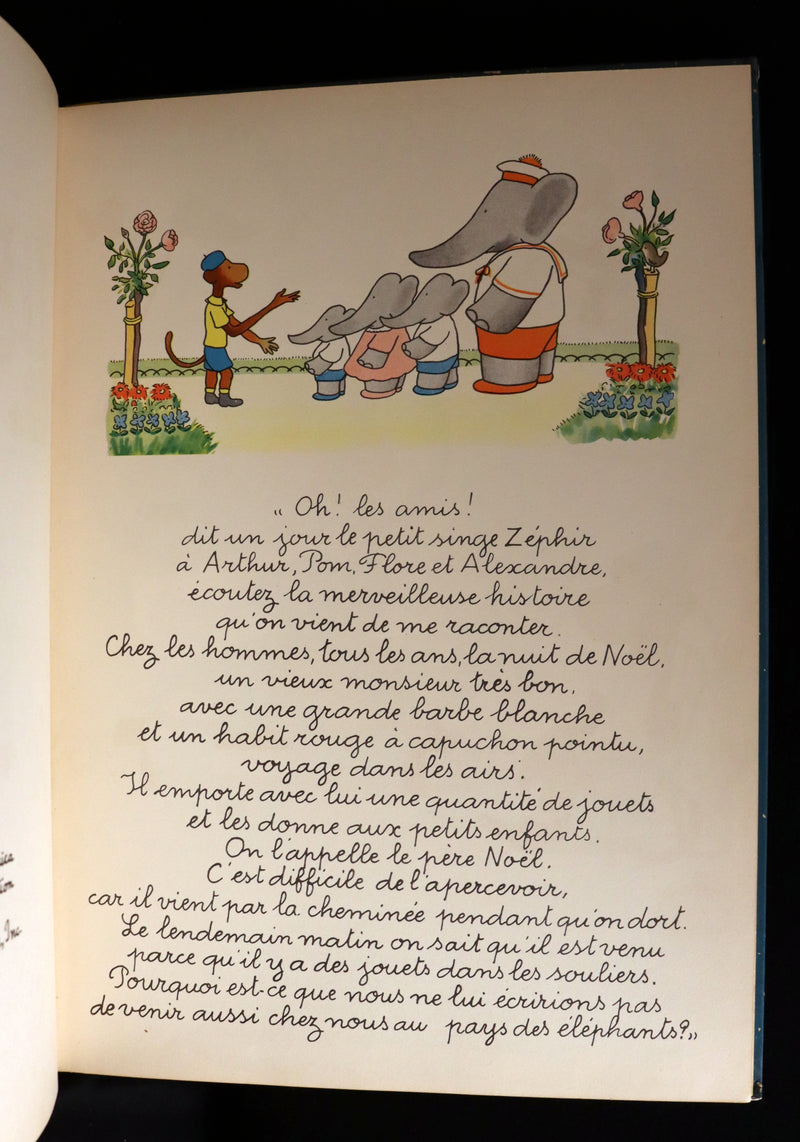 „ Oh! les amis!
dit un jour le petit singe Zéphir
à Arthur, Pom, Flore et Alexandre,
écoutez la merveilleuse histoire
qu'on vient de me raconter.
Chez les hommes, tous les ans, la nuit de Noël,
un vieux monsieur très bon,
avec une grande barbe blanche
et un habit rouge à capuchon pointu,
voyage dans les airs.
Il emporte avec lui une quantité de jouets
et les donne aux petits enfants.
On l'appelle le père Noël.
C'est difficile de l'apercevoir,
car il vient par la cheminée pendant qu'on dort.
Le lendemain matin on sait qu'il est venu
parce qu'il y a des jouets dans les souliers.
Pourquoi est-ce que nous ne lui écririons pas
de venir aussi chez nous au pays des éléphants?„
Inc